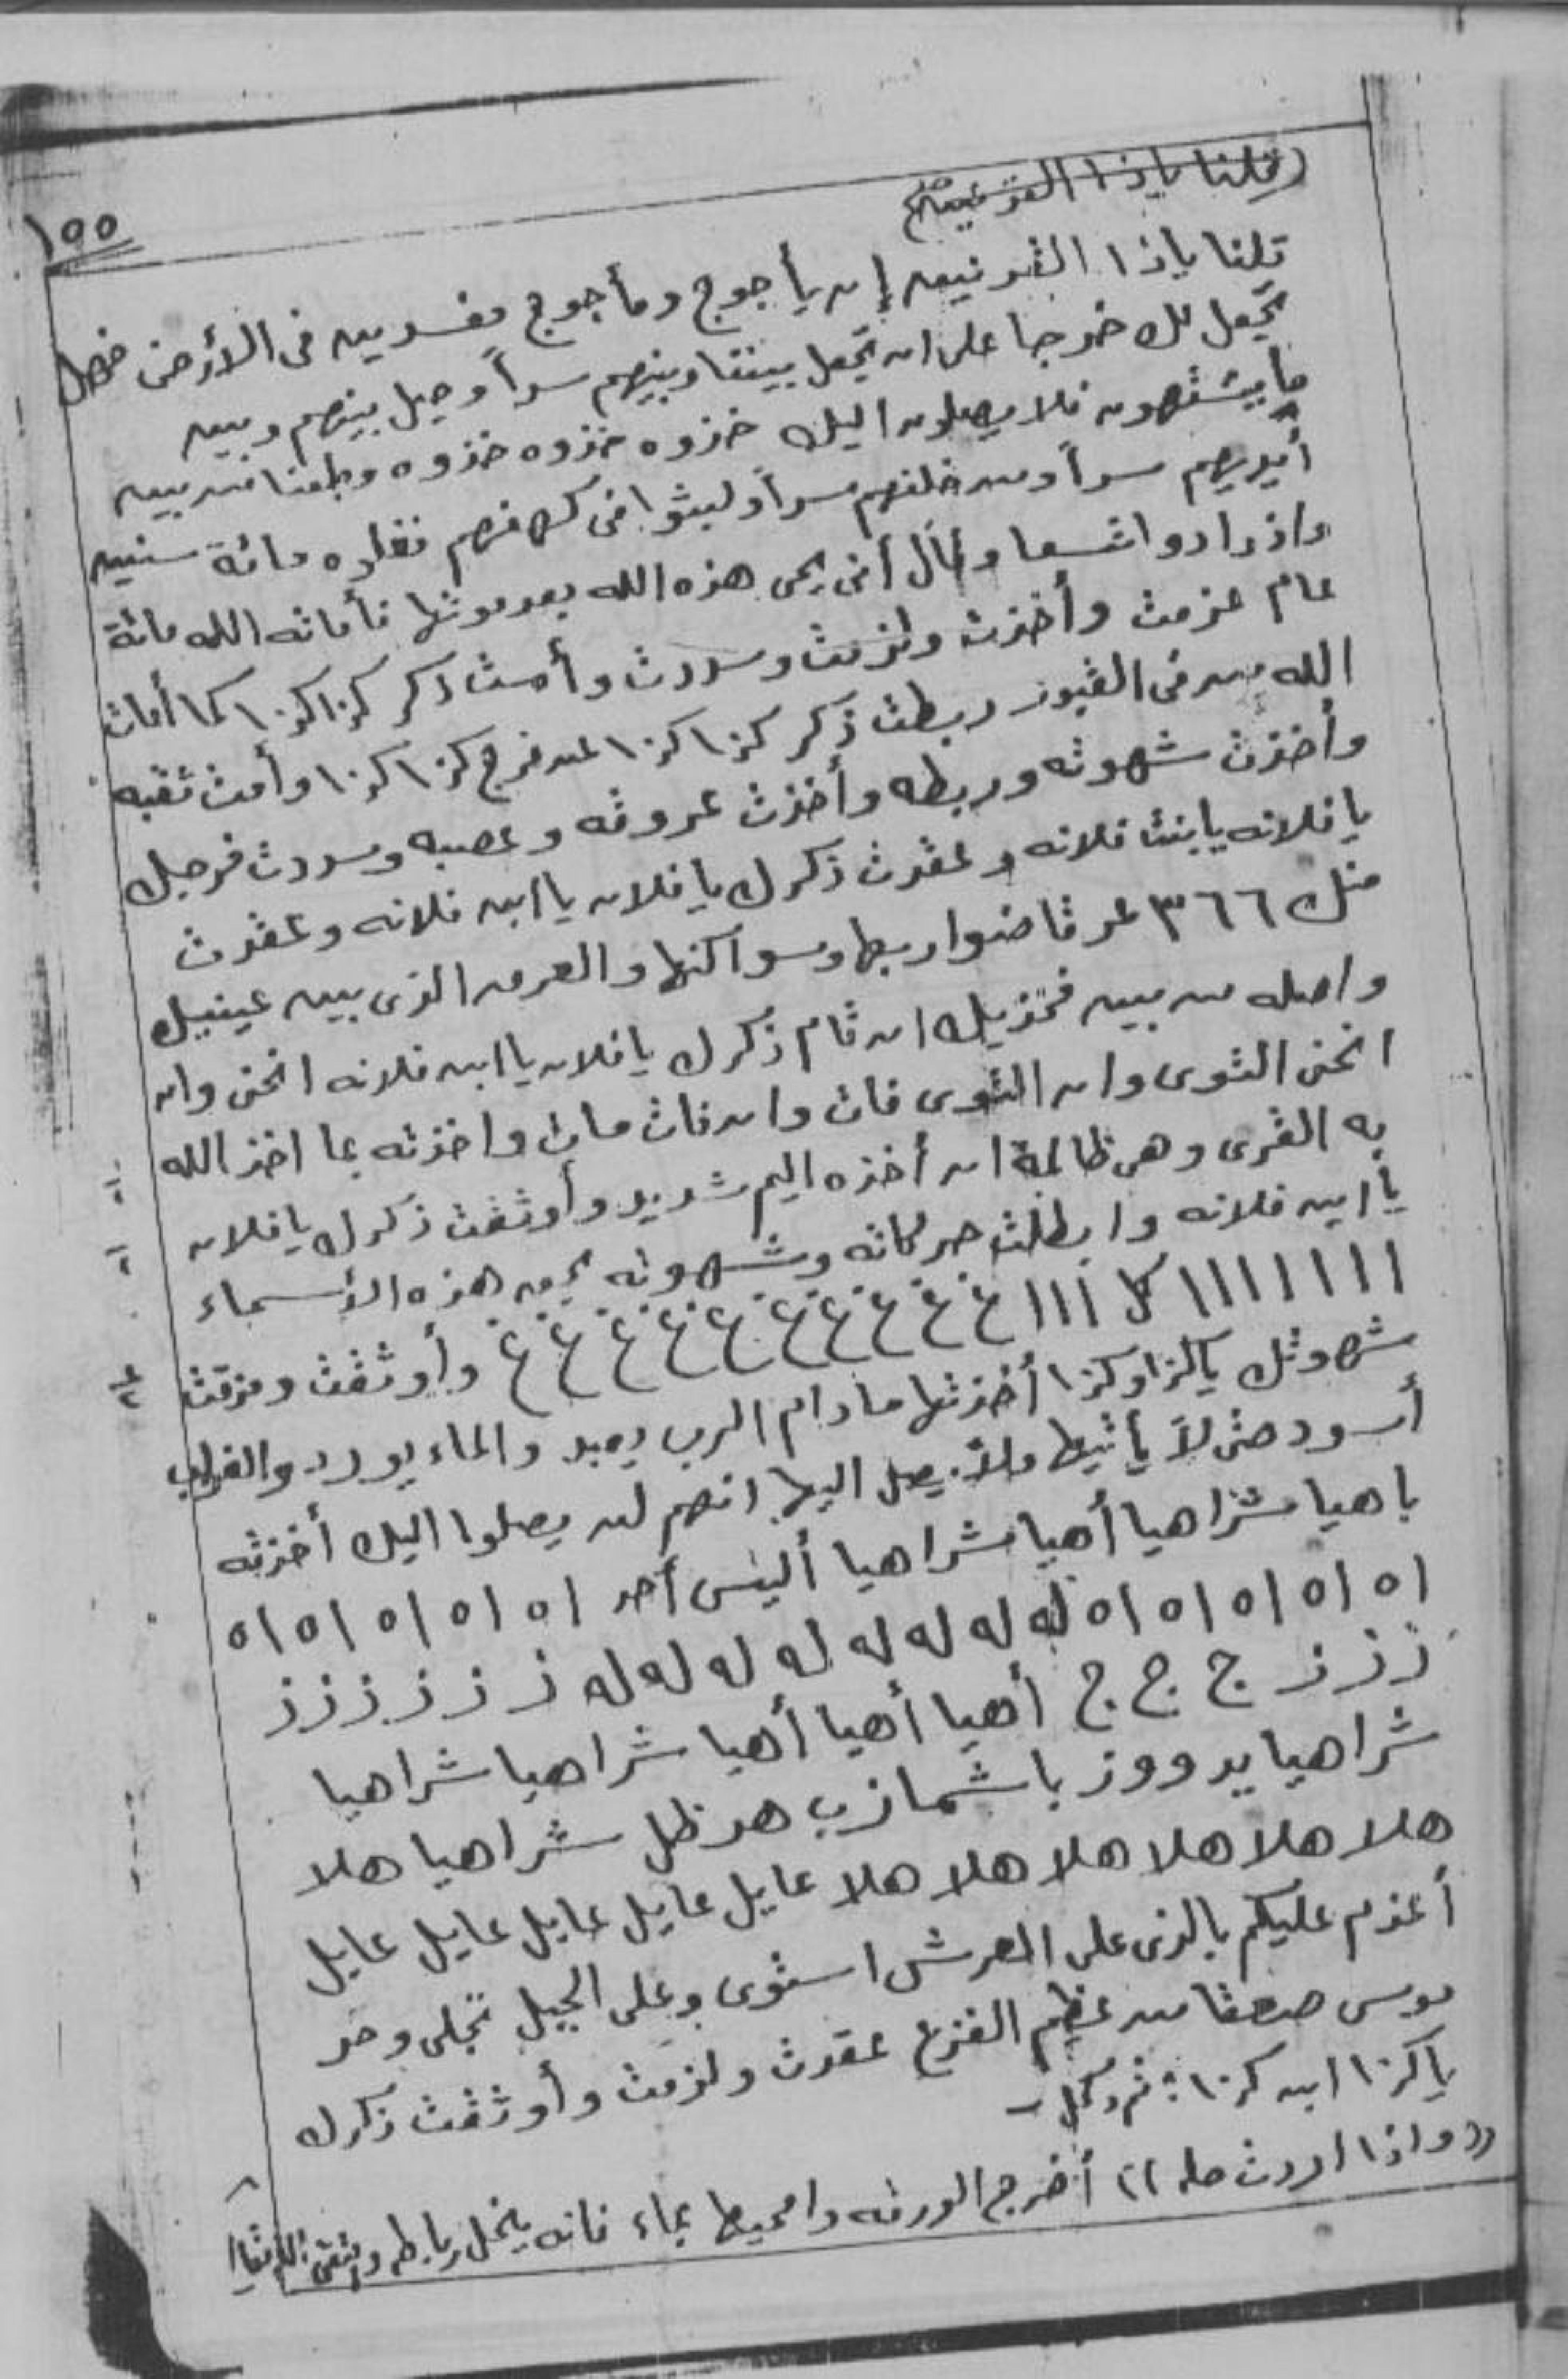 (قلنا ياذا القرنين)
١٥٥
قلنا ياذا القرنين إن يأجوج ومأجوج مفسدين فى الأرض فهل
نجعل لك خرجا على ان تجعل بيننا وبينهم سداً وحيل بينهم وبين
ما يشتهون فلا يصلون اليك خذوه خذوه خذوه وجعلنا من بين
أيديهم سداً ومن خلفهم سداً ولبثوا فى كهفهم ثلاثه مائة سنين
وازدادوا تسعا وقال أنى يحى هذه الله بعد موتها فأماته الله مائة
عام عزمت وأخذت ولزمت وسددت وأمت ذكر كذا كذا كما أمات
الله من فى القبور ربطت ذكر كذا كذا عن فرج كذا كذا وأمت ثقبه
وأخذت شهوته وربطه وأخذت عروقه وعصبه وسددت فرجك
يا فلانه يا بنت فلانه وعقدت ذكرك يا فلان يا ابن فلانه وعقدت
منك ٣٦٦ عرقا ضواربها وسواكنها والعرق الذى بين عينيك
واصله من بين فخذيك ان قام ذكرك يا فلان يا ابن فلانه انحنى وان
انحنى التوى وان التوى فات وان فات مات واخذته بما اخذ الله
به القرى وهى ظالمة ان أخذه اليم شديد وأوثقت ذكرك يا فلان
يا ابن فلانه وابطلت حركاته وشهوته بحق هذه الأسماء
ااااااااا كل ااا غ غ غ غ غ غ غ غ غ غ وأوثقت ومزقت
شهوتك يا كذا وكذا أخذتها مادام الرب يعبد والماء يورد والغراب
أسود حتى لا يأتيها ولا يصل اليها انهم لن يصلوا اليك أخذته
باهيا شراهيا أهيا شراهيا أليس أحد اه اه اه اه اه اه
اه اه اه اه اه له له له له له له له له ز ز ز ز ز ز
ز ز ز ج ج ج أهيا أهيا أهيا شراهيا شراهيا
شراهيا يد ووز باشمازب هد ظل شراهيا هلا
هلا هلا هلا هلا هلا هلا عايل عايل عايل عايل عايل
أعزم عليكم بالذى على العرش استوى وعلى الجبل تجلى وخر
موسى صعقا من عظم الفزع عقدت ولزمت وأوثقت ذكرك
يا كذا ابن كذا؛ ثم وكل ـ
((واذا اردت حله)) أخرج الورقه وامحيها بماء فانه ينحل رباطه